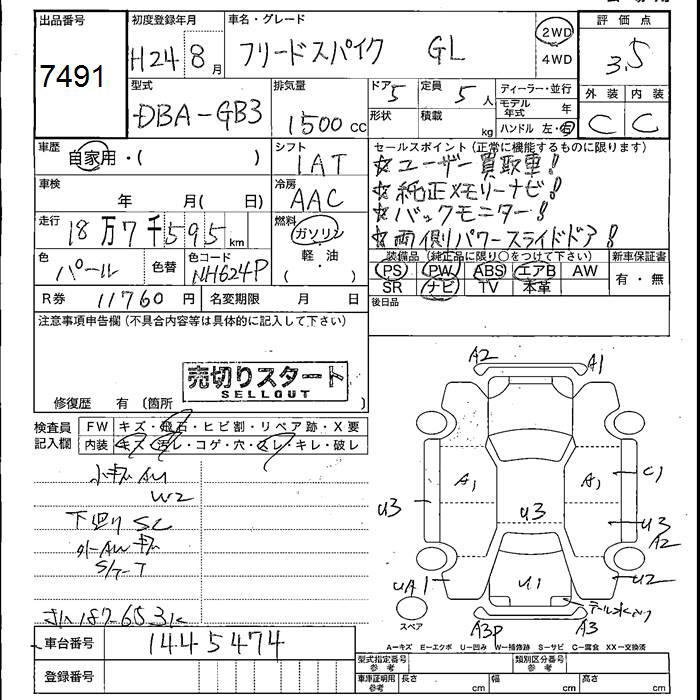 出品番号 初度登録年月 車名・グレード 評価点
7491 H24 8月 フリードスパイク GL 2WD 4WD 3.5
型式 排気量 ドア 定員 ディーラー・並行 外装 内装
DBA-GB3 1500cc 5 5人 モデル年式 年 C C
形状 積載 kg ハンドル 左・右
車歴 自家用・( ) シフト IAT セールスポイント(正常に機能するものに限ります)
☆ユーザー買取車!
車検 年 月( 日) 冷房 AAC ☆純正メモリーナビ!
☆バックモニター!
走行 18万7千595km 燃料 ガソリン 軽・油 ( ) ☆両側パワースライドドア!
色 パール 色替 色コード NH624P 装備品(純正品に限り○をつけて下さい) 新車保証書
PS PW ABS エアB AW 有・無
SR ナビ TV 本革
R券 11760円 名変期限 月 日 後日品
注意事項申告欄(不具合内容等は具体的に記入して下さい)
売切りスタート
SELLOUT
修復歴 有(箇所 )
検査員記入欄 FW キズ・飛石・ヒビ割・リペア跡・X要
内装 キズ・汚レ・コゲ・穴・スレ・キレ・破レ
小キズAU
W2
下廻りSC
外-AWキズ
S/T-T
187653k
A2 A1
A1 A1 C1
U3 U3 U3
A2
UA1 U1 U2
スペア A3P A3
A-キズ E-エクボ U-凹み W-補修跡 S-サビ C-腐食 XX-交換済
車台番号 1445474
型式指定番号 参考 類別区分番号 参考
登録番号 車庫証明用 参考 長さ cm 幅 cm 高さ cm